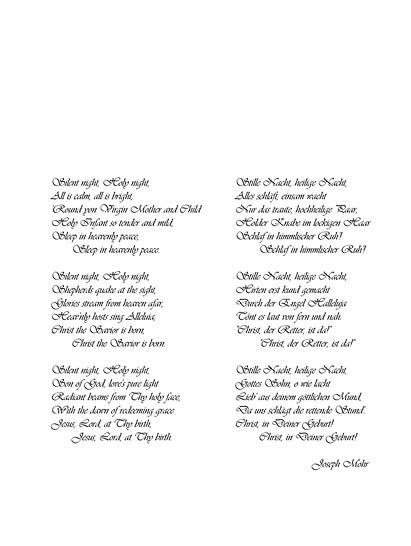 Silent night, Holy night,
All is calm, all is bright,
'Round yon Virgin Mother and Child
Holy Infant so tender and mild,
Sleep in heavenly peace,
Sleep in heavenly peace.
Silent night, Holy night,
Shepherds quake at the sight,
Glories stream from heaven afar,
Heav'nly hosts sing Alleluia,
Christ the Savior is born,
Christ the Savior is born.
Silent night, Holy night,
Son of God, love's pure light
Radiant beams from Thy holy face,
With the dawn of redeeming grace
Jesus, Lord, at Thy birth,
Jesus, Lord, at Thy birth.
Stille Nacht, heilige Nacht,
Alles schläft, einsam wacht
Nur das traute, hochheilige Paar,
Holder Knabe im lockigen Haar
Schlaf in himmlischer Ruh'!
Schlaf in himmlischer Ruh'!
Stille Nacht, heilige Nacht,
Hirten erst kund gemacht
Durch der Engel Halleluja
Tönt es laut von fern und nah:
'Christ, der Retter, ist da!'
'Christ, der Retter, ist da!'
Stille Nacht, heilige Nacht,
Gottes Sohn, o wie lacht
Lieb' aus deinem göttlichen Mund,
Da uns schlägt die rettende Stund'.
Christ, in Deiner Geburt!
Christ, in Deiner Geburt!
Joseph Mohr